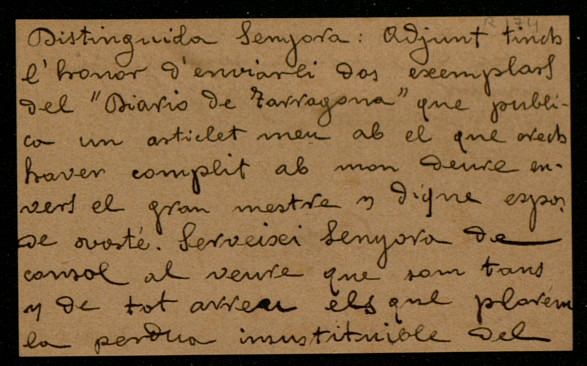 R 174
Distinguida Senyora: Adjunt tinch
l'honor d'enviarli dos exemplars
del "Diario de Tarragona" que publi-
ca un articlet meu ab el que crech
haver complit ab mon deure en-
vers el gran mestre y digne espós
de vosté. Serveixi Senyora de
consol al veure que som tans
y de tot arreu els que plorém
la perdua insustituible del